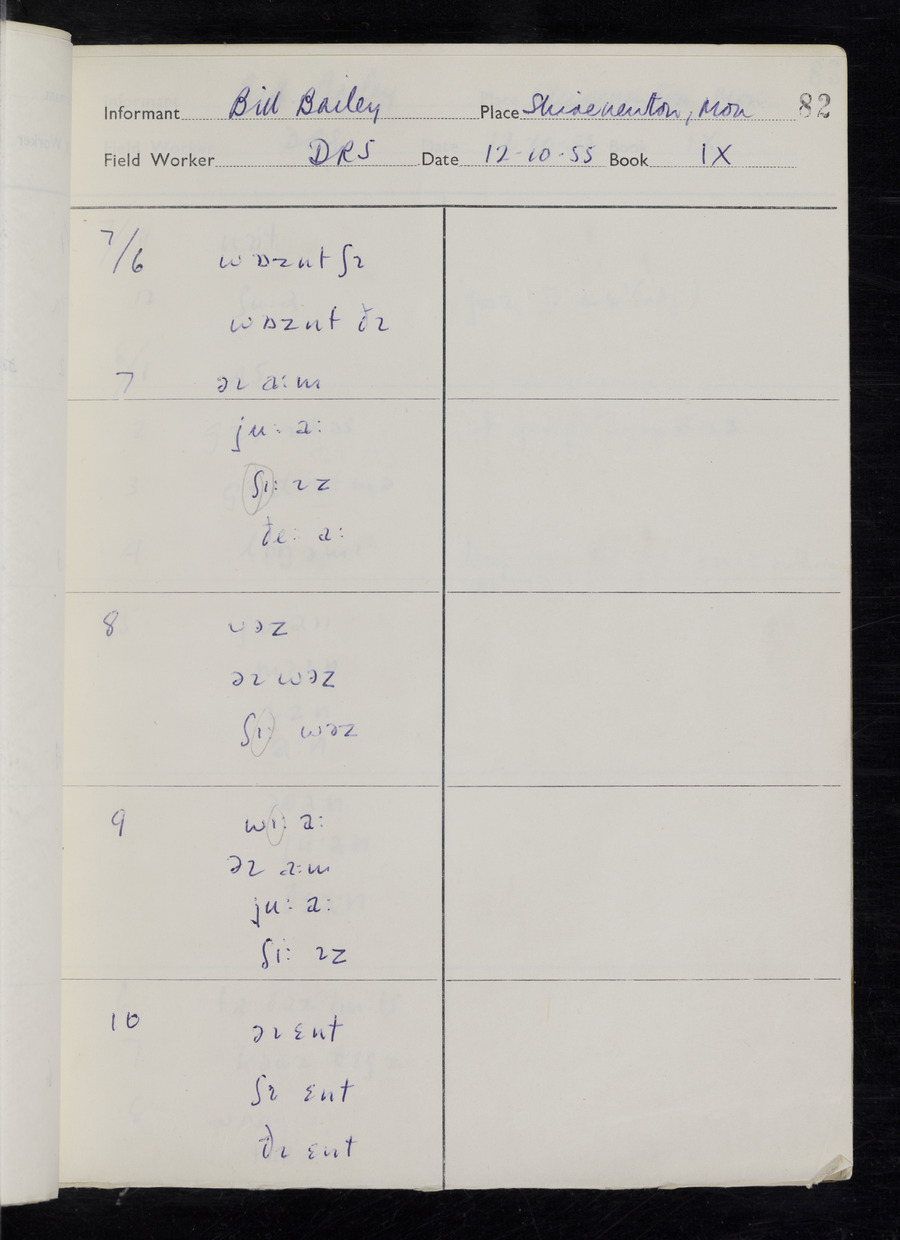 Informant Bill Bailey Place Shirenewton, Mon 82
Field Worker DRS Date 12-10-55 Book IX
7/6 wɒznt ʃɪ
wɒznt ðɪ
7 əɪ a:m
ju: a:
ʃi: ɪz
ðe: a:
8 wəz
əɪ wəz
ʃi: wəz
9 wi: a:
əɪ a:m
ju: a:
ʃi: ɪz
10 əɪ ɛnt
ʃɪ ɛnt
ðɪ ɛnt